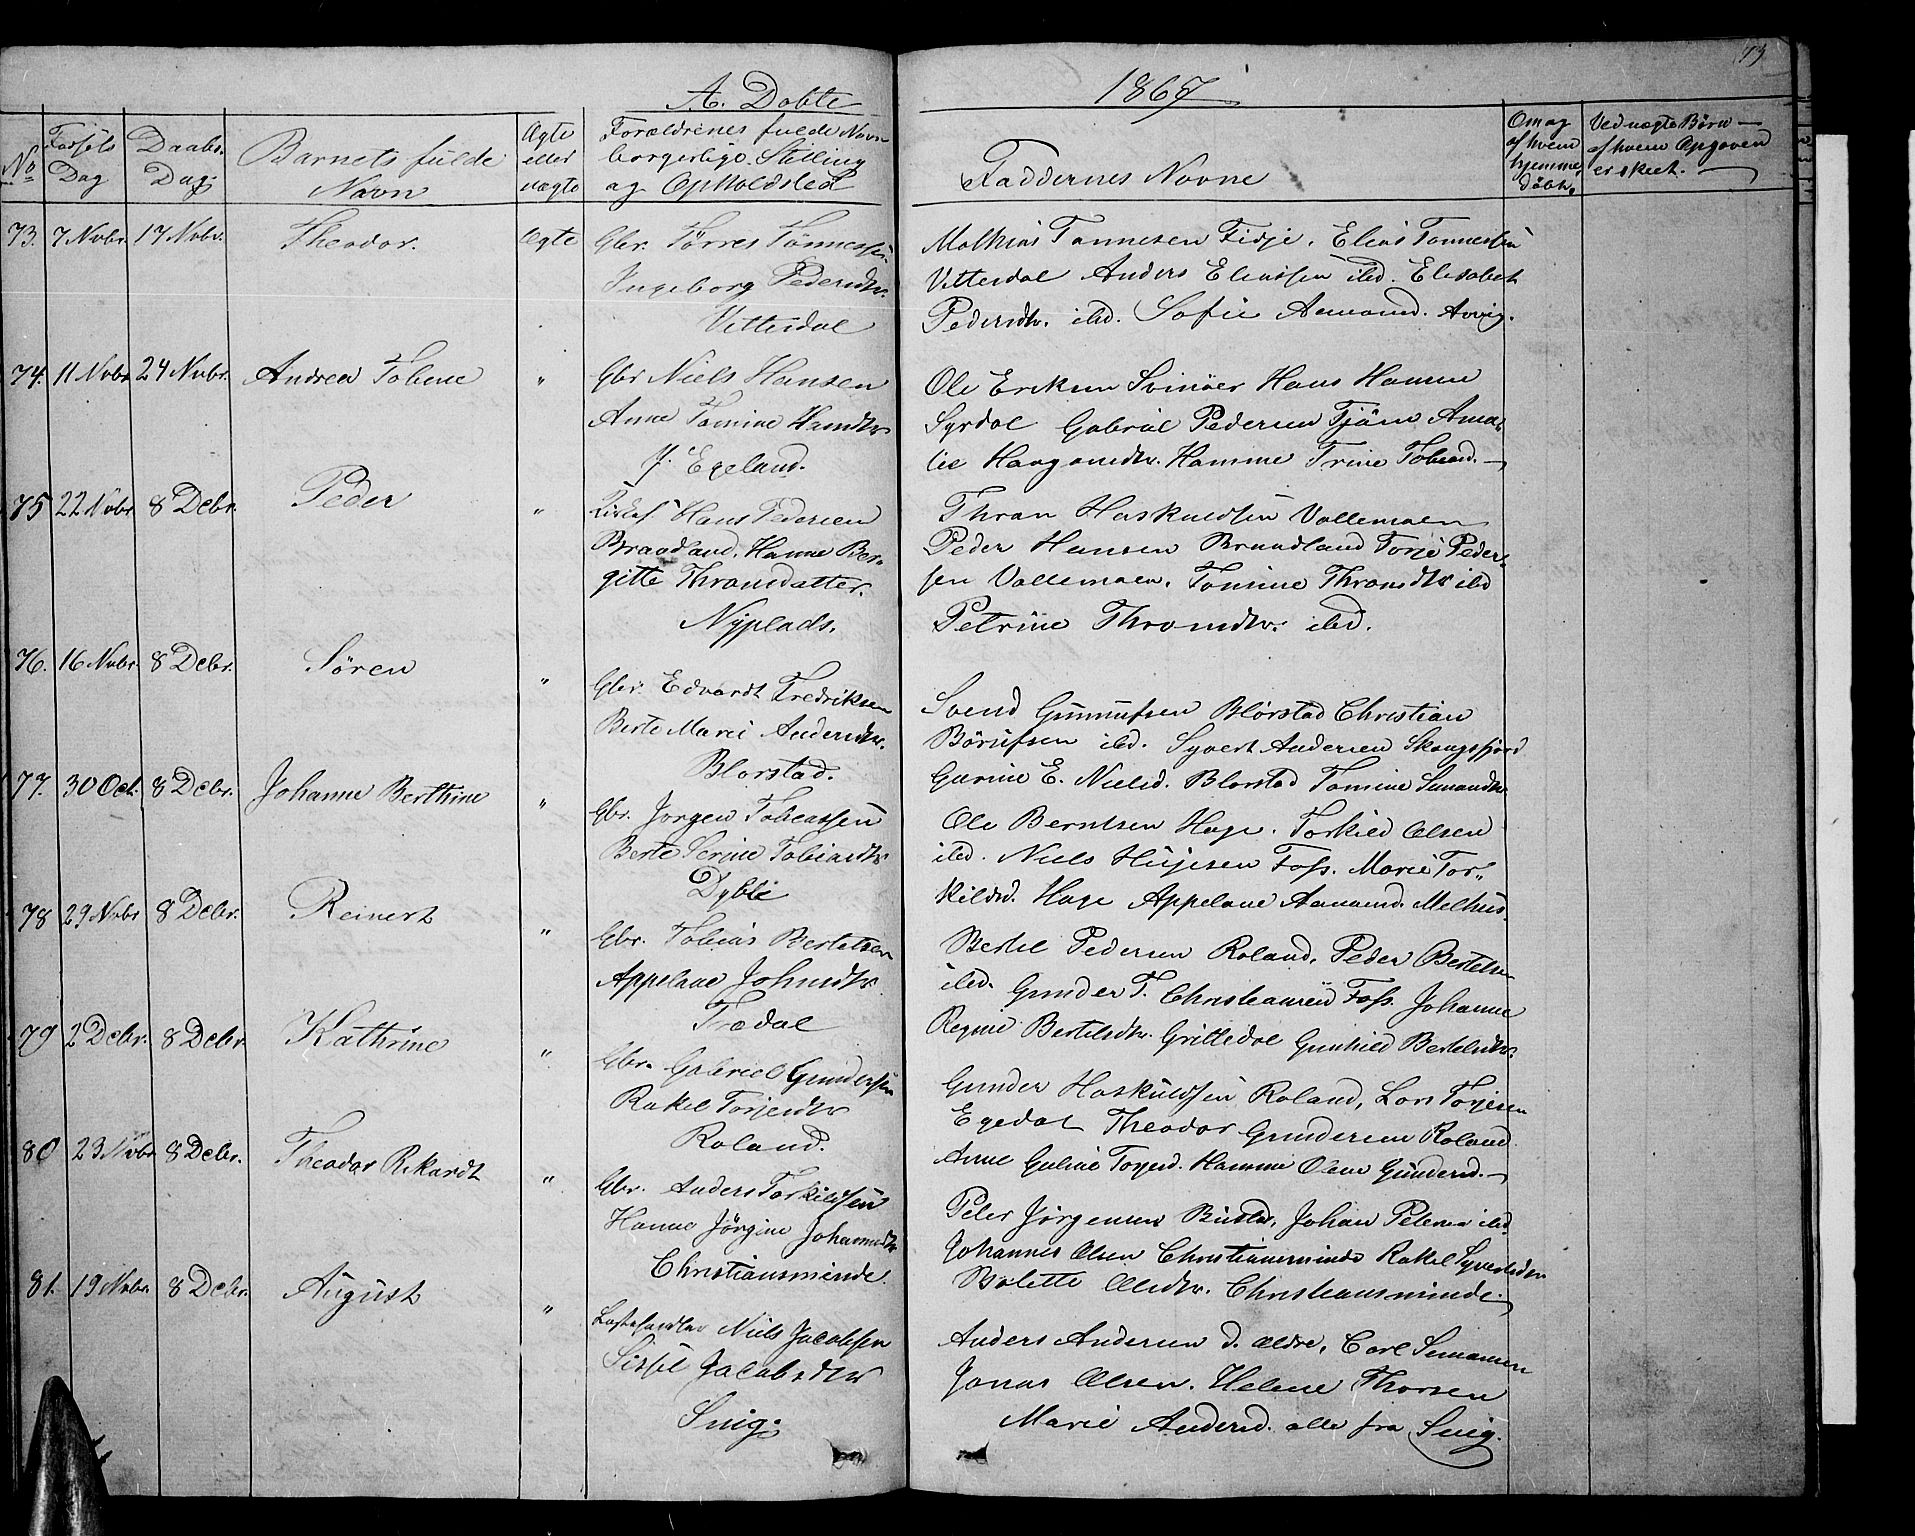 73
A. Døbte
1867
No
Fødsels Dag
Daabs Dag
Barnets fulde Navn
Ægte eller uægte
Forældrenes fulde Navn
borgerlige Stilling
og Opholdsted
Faddernes Navne
Om og af hvem hjemme døbt.
Ved uægte Børn af hvem Opgaven er skeet.
73. 7 Novbr. 17 Novbr. Theodor. Ægte
Gbr. Tørres Tønnessen
Ingeborg Pedersdtr.
Vittersdal
Mathias Tønnesen Fidje, Elias Tønnessen
Vittersdal Anders Eliassen ibd. Elisabet
Pedersdtr. ibd. Sofie Aamand. Avvig.
74. 11 Novbr 24 Novbr. Andrea Tobine "
Gbr Niels Hansen
Anne Tomine Hansdtr
Y. Egeland.
Ole Eriksen Svinøer Hans Hansen
Syrdal Gabriel Pedersen Tjøm Ama-
lie Haagensdtr. Hamme Trine Tobiasd.
75 22 Novbr 8 Decbr. Peder "
Hans Pedersen
Braadland. Hanne Ber-
gitte Thronsdatter.
Nyplads.
Thron Haskuldsen Vallemoen
Peder Hansen Braadland Torje Peder-
sen Vallemoen, Tomine Thronsdtr ibd
Petrine Thronsdtr. ibd.
76. 16 Novbr. 8 Decbr. Søren "
Gbr. Edvardt Fredriksen
Berte Marie Andersdtr.
Blørstad.
Svend Gunnufsen Blørstad Christian
Børufsen ibd. Syvert Andersen Skougsfjord
Gurine E. Nielsd. Blørstad Tomine Simonsdtr
77. 30 Oct. 8 Decbr. Johanne Berthine "
Gbr. Jørgen Tobeassen
Berte Serine Tobiasdtr
Dyblie
Ole Berntsen Hage. Torkild Olsen
ibd. Niels Foss. Marie Tor-
kildsd. Hage Appelone Aanensd. Melhus.
78 29 Novbr 8 Decbr. Reinert "
Gbr. Tobias Bertelsen
Appelone Johnsdtr
Trædal
Bertel Pedersen Roland, Peder Bertelsen
ibd. Gunder T. Christiansen Foss. Johanne
Regine Bertelsdtr. Grittedal Gunhild Bertelsdtr.
79 2 Decbr. 8 Decbr. Kathrine "
Gbr. Gabriel Gundersen
Rakel Torjesdtr
Roland.
Gunder Haskuldsen Roland, Lars Torjesen
Egedal Theodor Gundersen Roland
Anne Guline Torjesd. Hamme Oline Gundersd.
80 23 Novbr 8 Decbr. Theodor Rikardt "
Gbr. Anders Torkildsen
Hanne Jørgine Johannesdtr
Christiansminde.
Peter Jørgensen Johan Petersen ibd
Johannes Olsen Christiansminde Rakel Syvertsdtr
Bolette Olsdtr. Christiansminde.
81. 19 Novbr. 8 Decbr. August "
Niels Jacobsen
Sissel Jacobsdtr
Snig.
Anders Andersen d. ældre, Carl Simonsen
Jonas Olsen. Helene Thorsen
Marie Andersd. alle fra Snig.